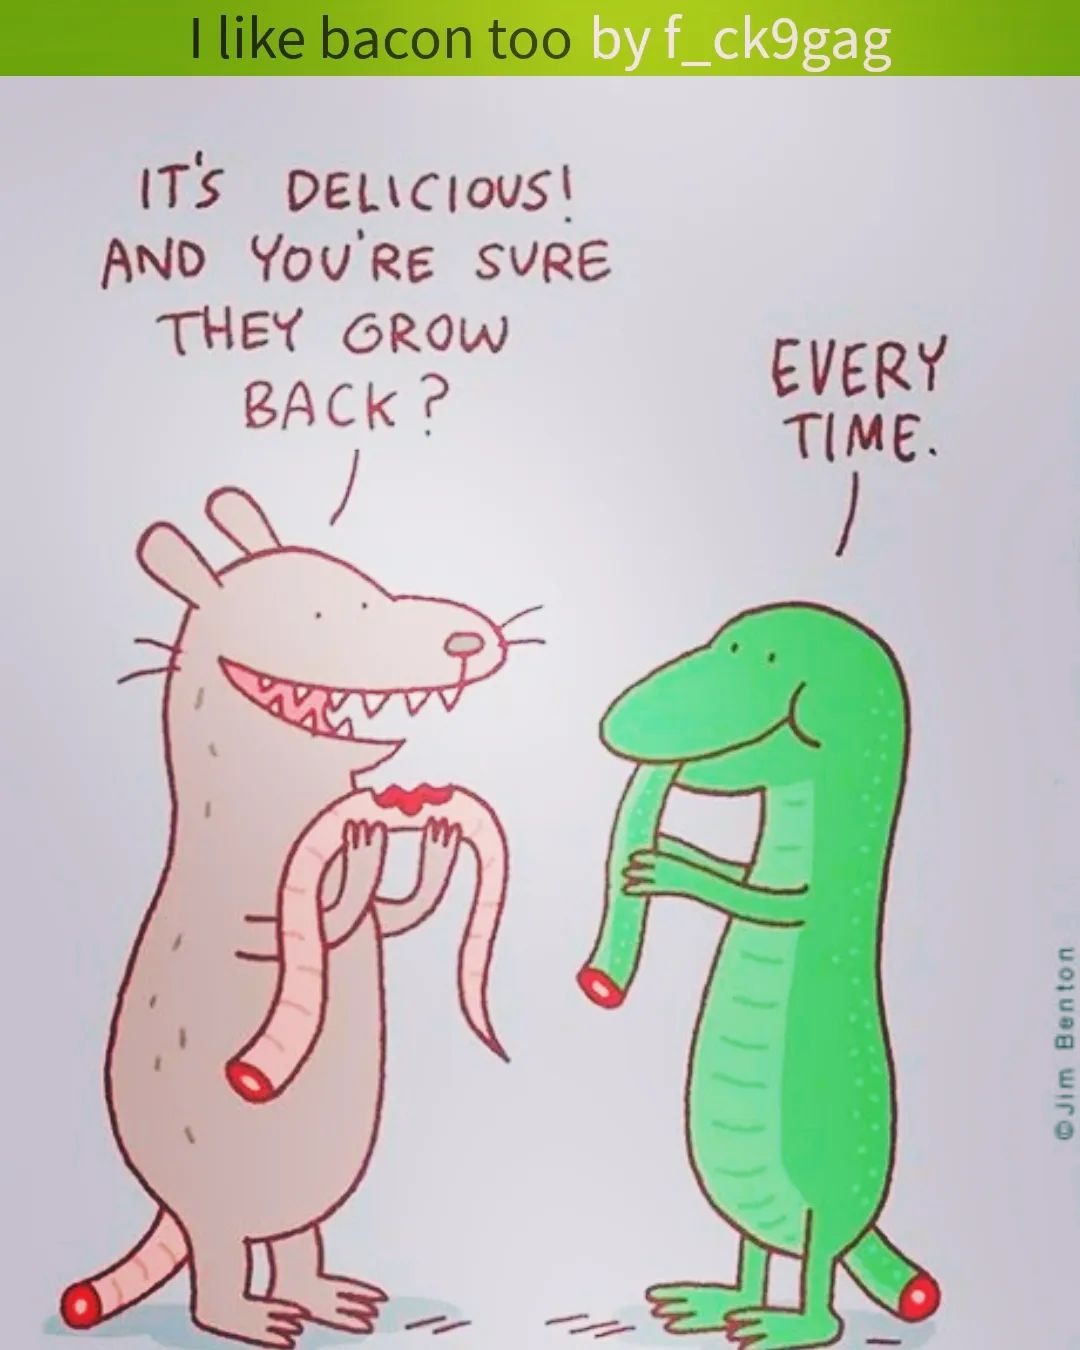 I like bacon too by f_ck9gag
IT'S DELICIOUS!
AND YOU'RE SURE
THEY GROW
BACK?
EVERY
TIME.
©Jim Benton